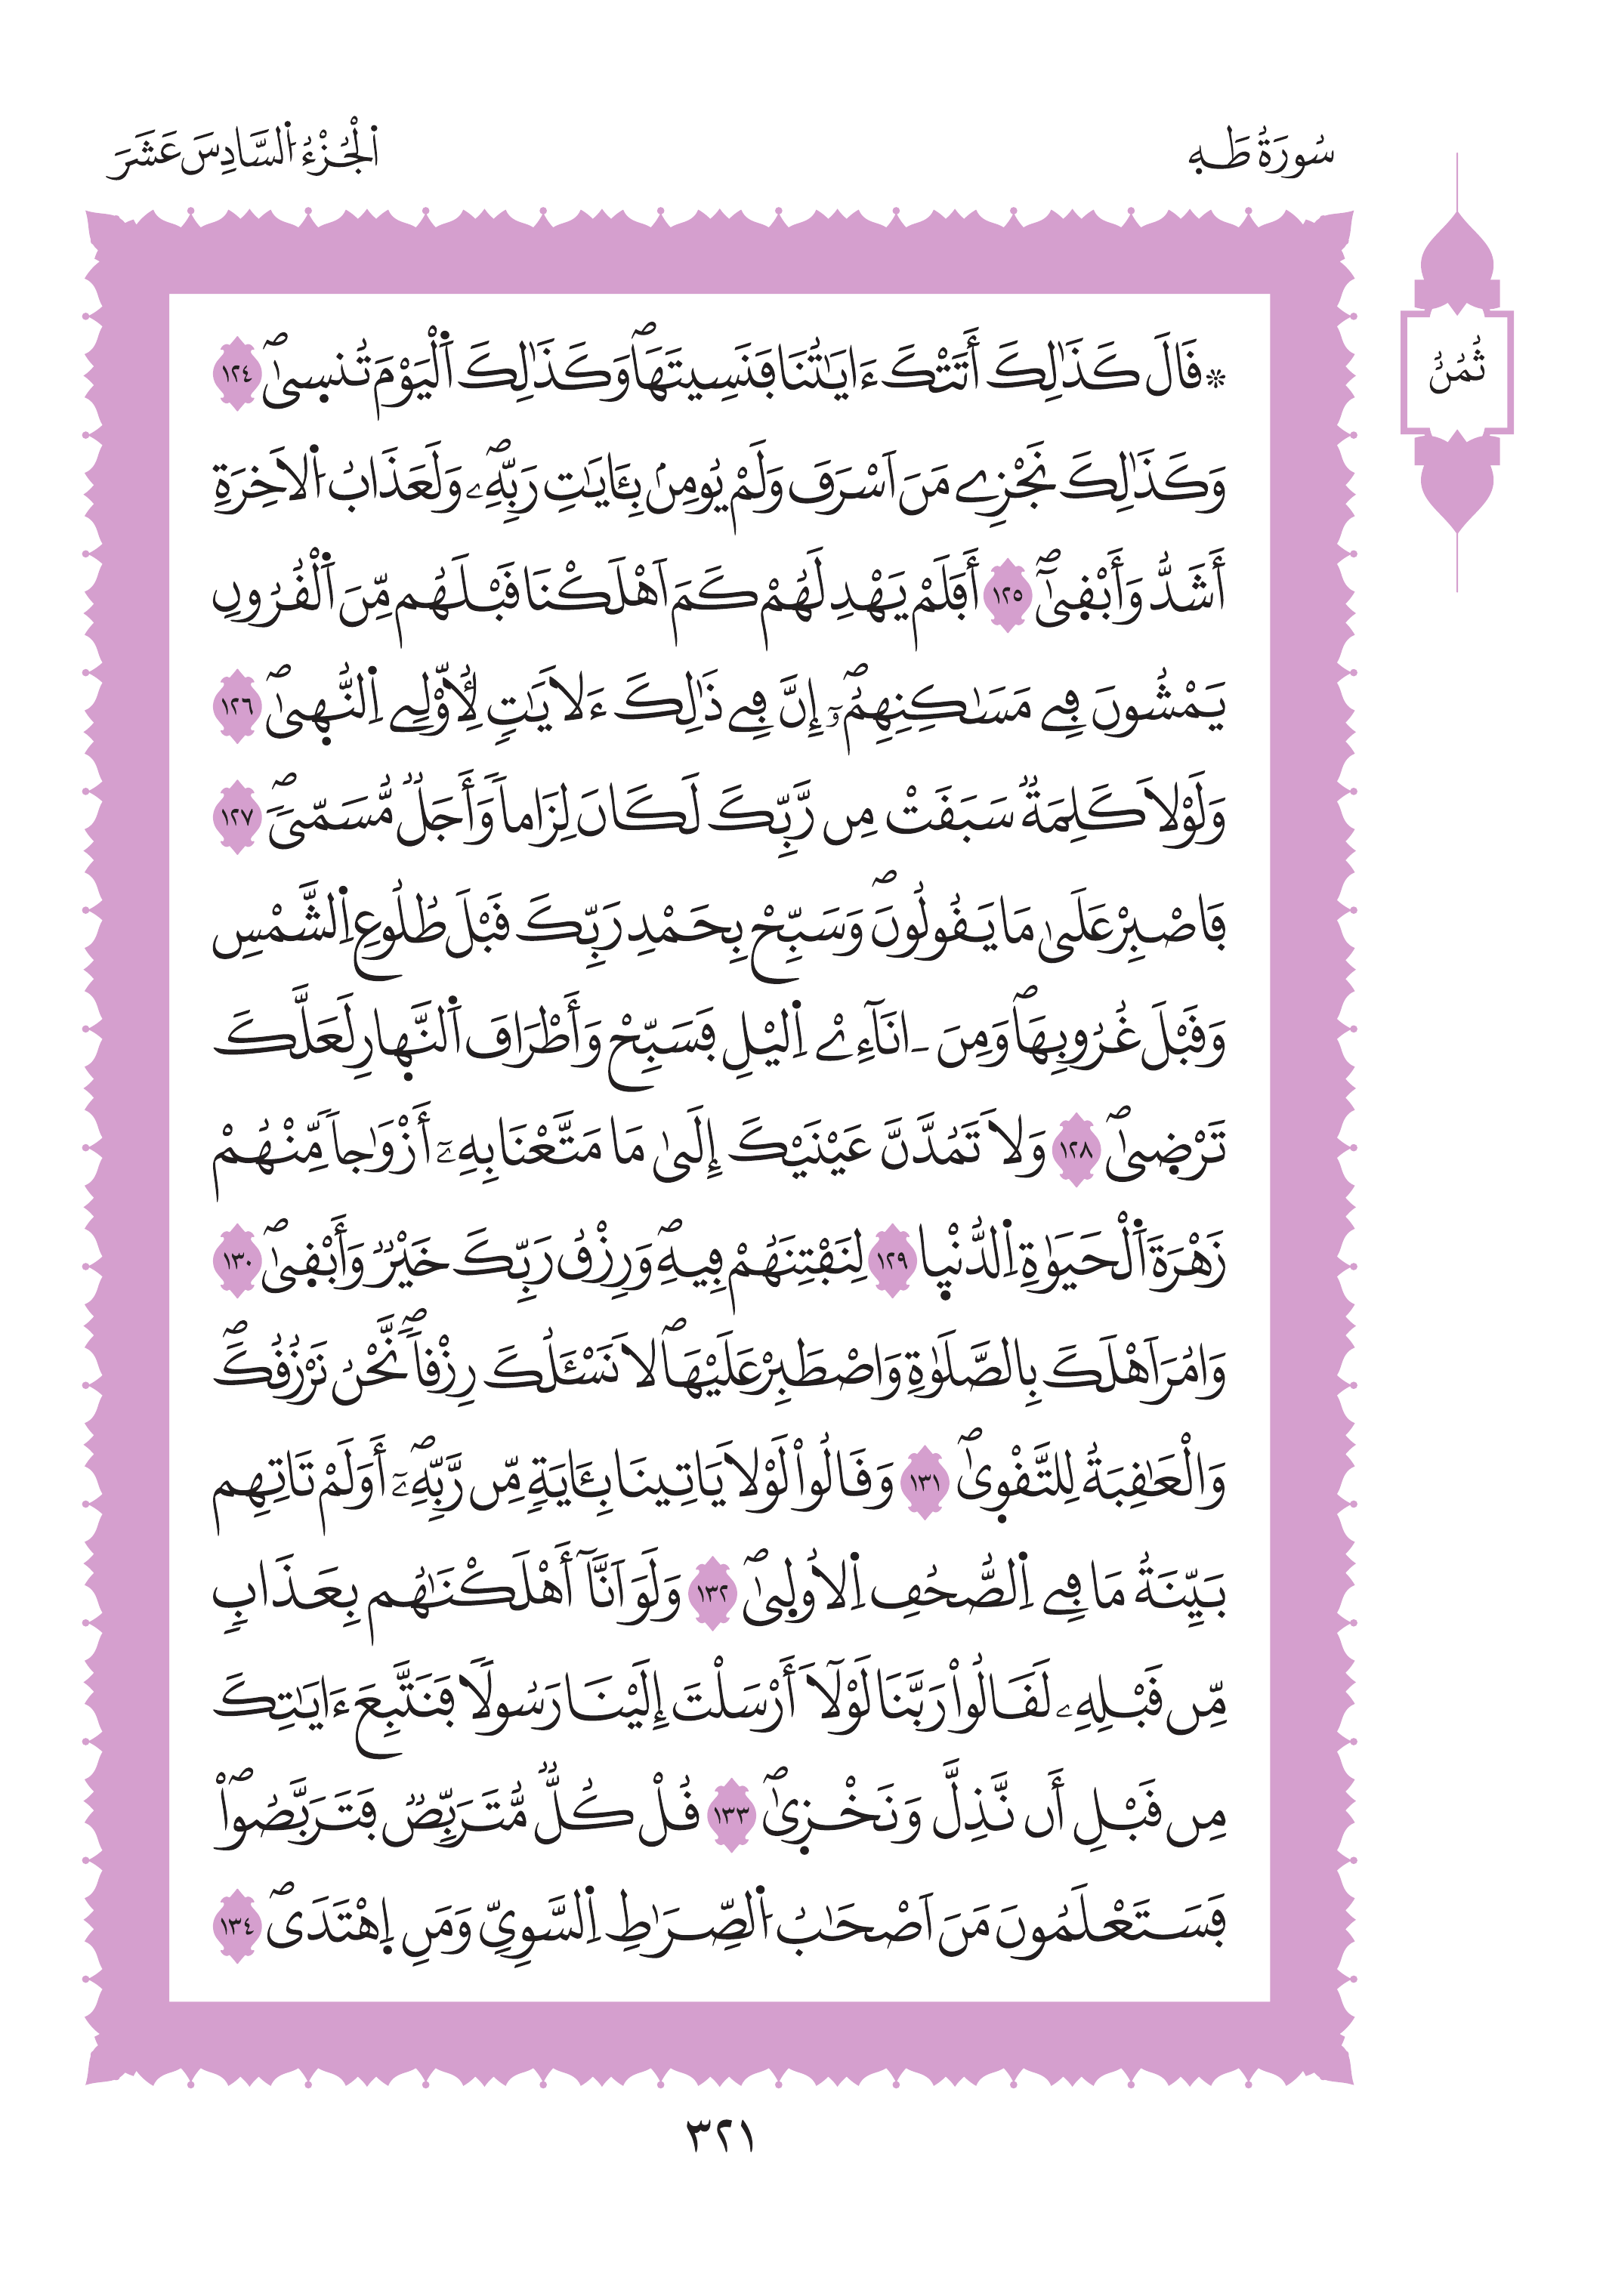 سُورَةُ طَهِ
اَلْجُزْءُ اُلسَّادِسَ عَشَرَ
ثُمُنُ
* قَالَ كَذَٰلِكَ أَتَتْكَ ءَايَٰتُنَا فَنَسِيتَهَاۖ وَكَذَٰلِكَ اَ۬لْيَوْمَ تُنس۪ىٰۖ ١٢٤
وَكَذَٰلِكَ نَجْزِے مَنَ اَسْرَفَ وَلَمْ يُومِنۢ بِـَٔايَٰتِ رَبِّهِۦۖ وَلَعَذَابُ اُ۬لَاخِرَةِ
أَشَدُّ وَأَبْق۪ىٰٓۖ ١٢٥ أَفَلَمْ يَهْدِ لَهُمْ كَمَ اَهْلَكْنَا قَبْلَهُم مِّنَ اَ۬لْقُرُونِ
يَمْشُونَ فِے مَسَٰكِنِهِمُۥٓۖ إِنَّ فِے ذَٰلِكَ ءَلَايَٰتٍ لِّأُوْلِے اِ۬لنُّه۪ىٰۖ ١٢٦
وَلَوْلَا كَلِمَةٌ سَبَقَتْ مِن رَّبِّكَ لَكَانَ لِزَاماً وَأَجَلٌ مُّسَمّىٗۖ ١٢٧
فَاصْبِرْ عَلَىٰ مَا يَقُولُونَۖ وَسَبِّحْ بِحَمْدِ رَبِّكَ قَبْلَ طُلُوعِ اِ۬لشَّمْسِ
وَقَبْلَ غُرُوبِهَاۖ وَمِنَ اٰنَآءِےْ اِ۬ليْلِ فَسَبِّحْ وَأَطْرَافَ اَ۬لنَّه۪ارِ لَعَلَّكَ
تَرْض۪ىٰۖ ١٢٨ وَلَا تَمُدَّنَّ عَيْنَيْكَ إِلَىٰ مَا مَتَّعْنَا بِهِۦٓ أَزْوَٰجاً مِّنْهُمْ
زَهْرَةَ اَ۬لْحَيَوٰةِ اِ۬لدُّنْي۪ا ١٢٩ لِنَفْتِنَهُمْ فِيهِۖ وَرِزْقُ رَبِّكَ خَيْرٌ وَأَبْق۪ىٰۖ ١٣٠
وَامُرَ اَهْلَكَ بِالصَّلَوٰةِ وَاصْطَبِرْ عَلَيْهَاۖ لَا نَسْـَٔلُكَ رِزْقاًۖ نَّحْنُ نَرْزُقُكَۖ
وَالْعَٰقِبَةُ لِلتَّقْو۪ىٰۖ ١٣١ وَقَالُواْ لَوْلَا يَاتِينَا بِـَٔايَةٍ مِّن رَّبِّهِۦٓۖ أَوَلَمْ تَاتِهِم
بَيِّنَةُ مَا فِے اِ۬لصُّحُفِ اِ۬لُاول۪ىٰۖ ١٣٢ وَلَوَ اَنَّآ أَهْلَكْنَٰهُم بِعَذَابٍ
مِّن قَبْلِهِۦ لَقَالُواْ رَبَّنَا لَوْلَآ أَرْسَلْتَ إِلَيْنَا رَسُولًا فَنَتَّبِعَ ءَايَٰتِكَ
مِن قَبْلِ أَن نَّذِلَّ وَنَخْز۪ىٰۖ ١٣٣ قُلْ كُلٌّ مُّتَرَبِّصٌ فَتَرَبَّصُواْۖ
فَسَتَعْلَمُونَ مَنَ اَصْحَٰبُ اُ۬لصِّرَٰطِ اِ۬لسَّوِيِّ وَمَنِ اِ۪هْتَدَىٰۖ ١٣٤
٣٢١